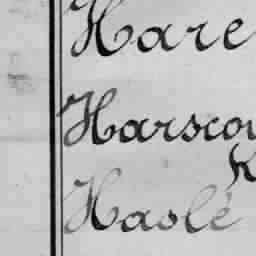 Hare
Harscou
K
Haslé